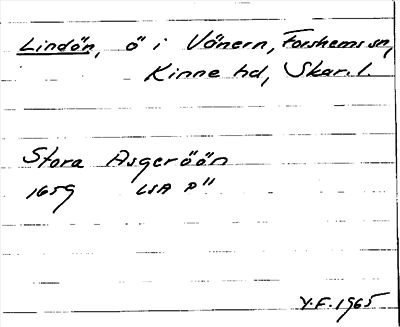 Lindön, ö i Vänern, Forshems sn,
Kinne hd, Skar. l.
Stora Asgeröön
1659 LSA P"
Y.F. 1965